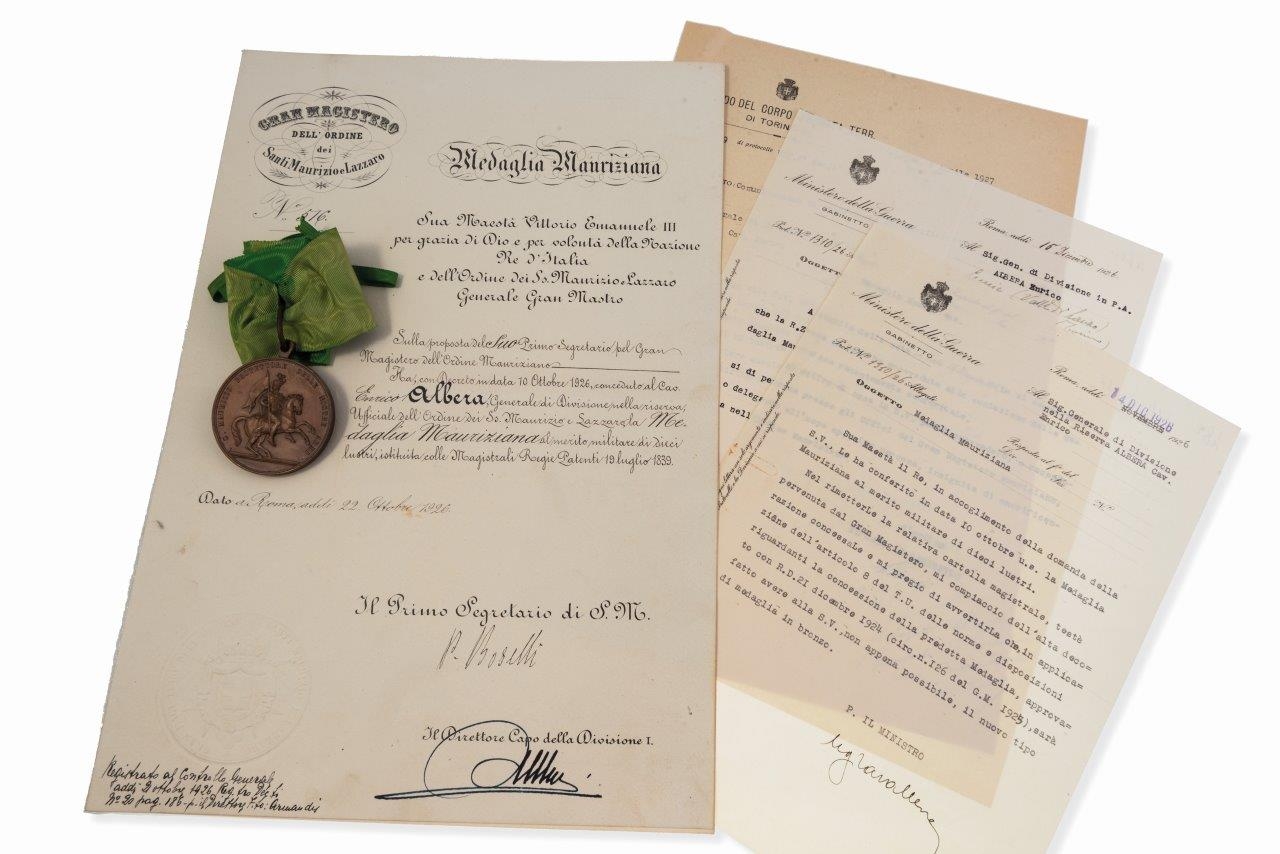 GRAN MAGISTERO
DELL' ORDINE
dei
Santi Maurizio e Lazzaro
Medaglia Mauriziana
Sua Maestà Vittorio Emanuele III
per grazia di Dio e per volontà della Nazione
Re d'Italia
e dell'Ordine dei Ss. Maurizio e Lazzaro
Generale Gran Mastro
Sulla proposta del Suo Primo Segretario pel Gran
Magistero dell'Ordine Mauriziano
Ha, con Decreto in data 10 Ottobre 1926, conceduto al Cav.
Enrico Albera, Generale di Divisione nella riserva,
Ufficiale dell'Ordine dei Ss. Maurizio e Lazzaro la Me-
daglia Mauriziana al merito militare di dieci
lustri, istituita colle Magistrali Regie Patenti 19 luglio 1839.
Dato a Roma, addì 22 Ottobre 1926.
Il Primo Segretario di S.M.
P. Boselli
Il Direttore Capo della Divisione I.
Registrato al Controllo Generale
addì 2 ottobre 1926, Reg.
N° 20 pag. 186
DEL CORPO TERR.
DI TORIN
di protocollo
1927
Ministero della Guerra
GABINETTO
Prot. N.° 1310/26
OGGETTO
Roma, addì 15 1926
Al Sig. Gen. di Divisione in P.A.
ALBERA Enrico
che la R.Z
daglia Mau
si di pe
o deleg
a nell
Ministero della Guerra
GABINETTO
Prot. N.° 1310/26 Allegati
OGGETTO Medaglia Mauriziana
Roma, addì 14 DIC. 1926
NOVEMBRE 1926
Al Sig. Generale di Divisione
nella Riserva ALBERA Cav.
Enrico
Risposta al f.° del
Div. Sez. N.°
Sua Maestà il Re, in accoglimento della domanda della
S.V., Le ha conferito in data IO ottobre u.s. la Medaglia
Mauriziana al merito militare di dieci lustri.
Nel rimetterLe la relativa cartella magistrale, testè
pervenuta dal Gran Magistero, mi compiaccio dell'alta deco=
razione concessaLe e mi pregio di avvertirLa che, in applica=
ziòne dell'articolo 8 del T.U. delle norme e disposizioni
riguardanti la concessione della predetta Medaglia, approva=
to con R.D.2I dicembre I924 (circ.n.I26 del G.M. I925), sarà
fatto avere alla S.V., non appena possibile, il nuovo tipo
di medaglia in bronzo.
P. IL MINISTRO